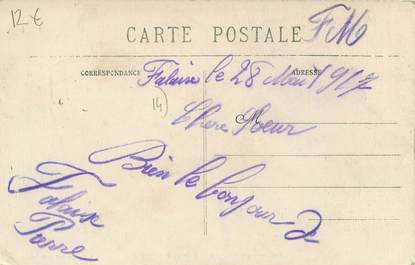 12€
CARTE POSTALE
FM
CORRESPONDANCE
ADRESSE
Falaise le 28 Mai 1917
14
M
Chere Soeur
Bien le bonjour de
Falaise
Pierre